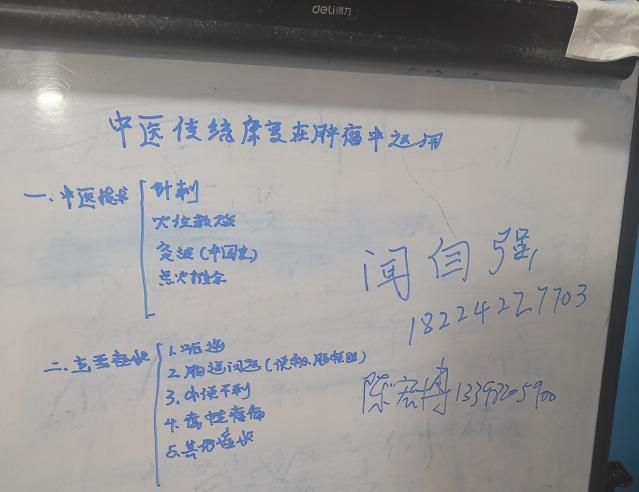 deli得力
中医传统康复在肿瘤中运用
一、中医技术
针刺
穴位敷贴
灸法(中国灸)
点穴推拿
二、主要症状
1.呃逆
2.肠道问题(便秘、肠梗阻)
3.小便不利
4.癌性疼痛
5.其他症状
闻闫强
18224227703
陈宏博